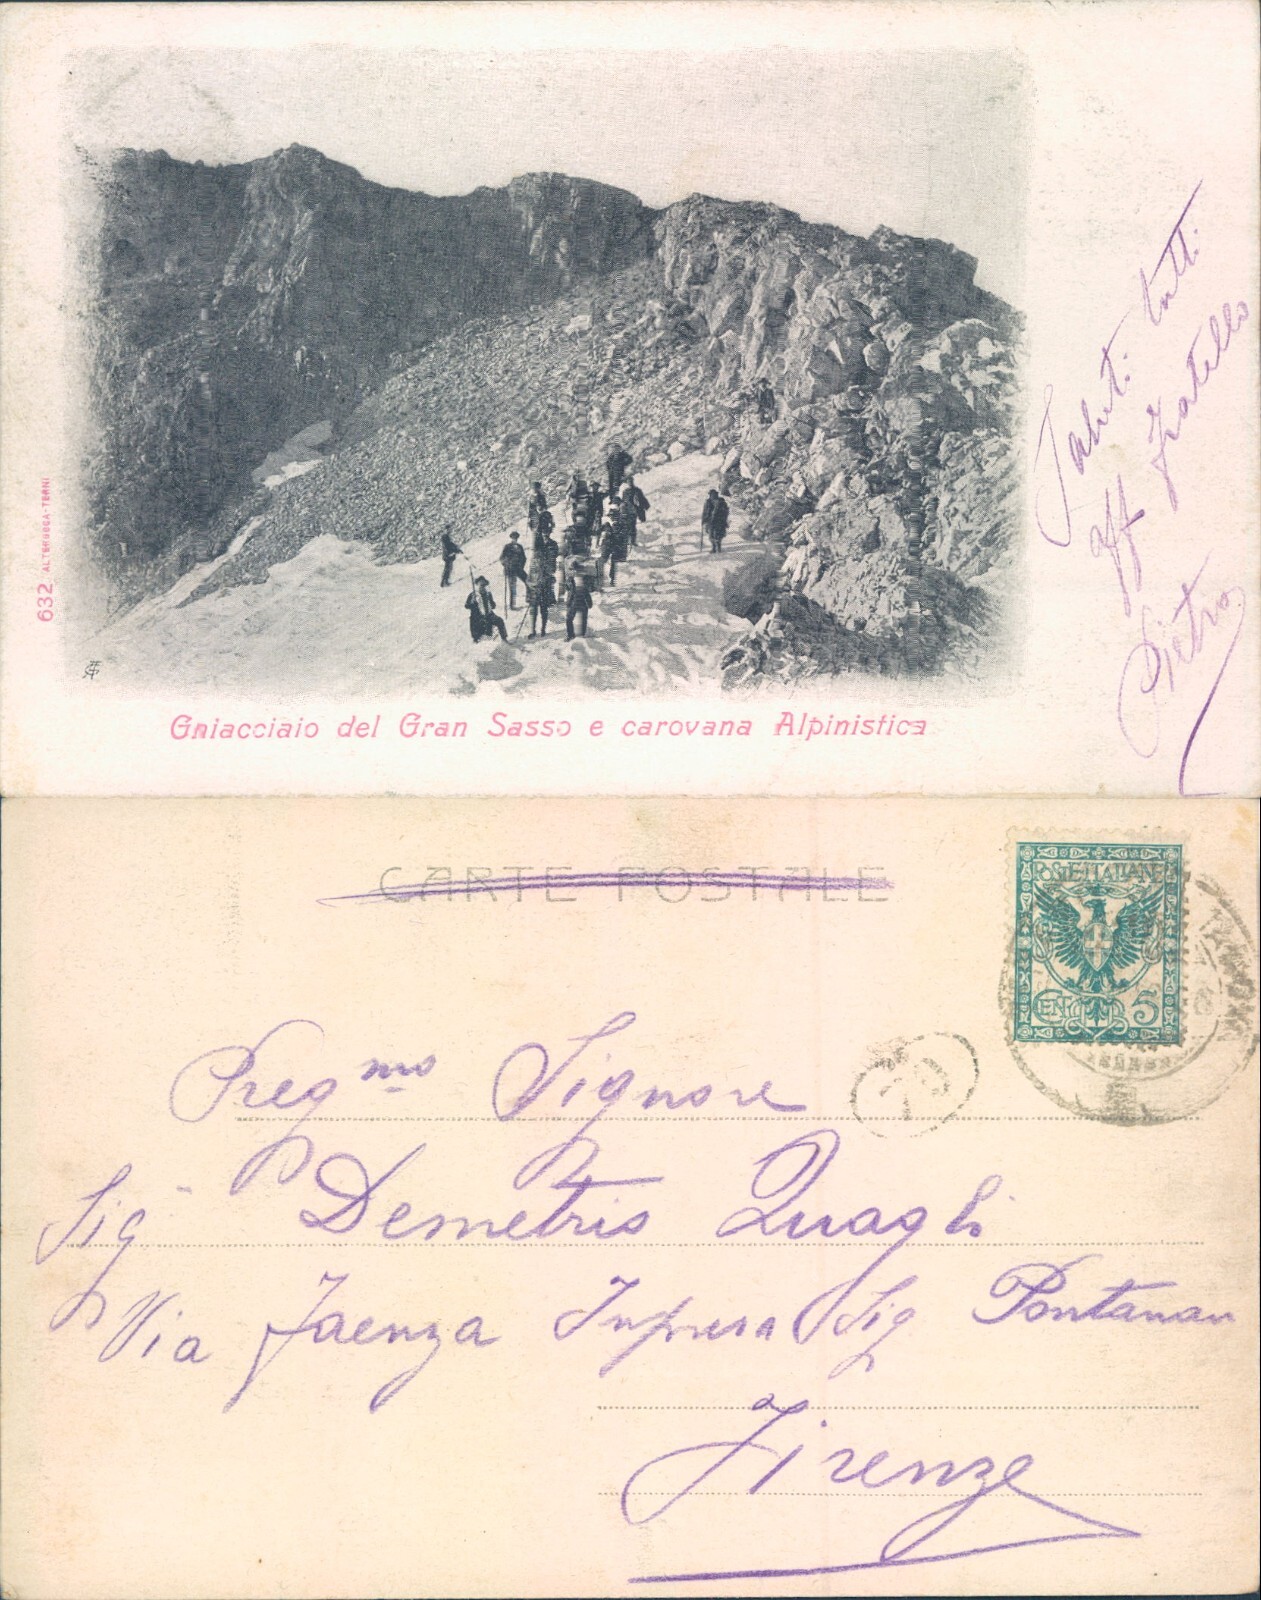 Saluti tutti
aff fratello
Pietro
632 ALTEROCCA-TERNI
Ghiacciaio del Gran Sasso e carovana Alpinistica
CARTE POSTALE
POSTE ITALIANE
CENT 5
Pregmo Signore
Sig Demetrio Quagli
Via Faenza Impresa Sig Pontanari
Firenze